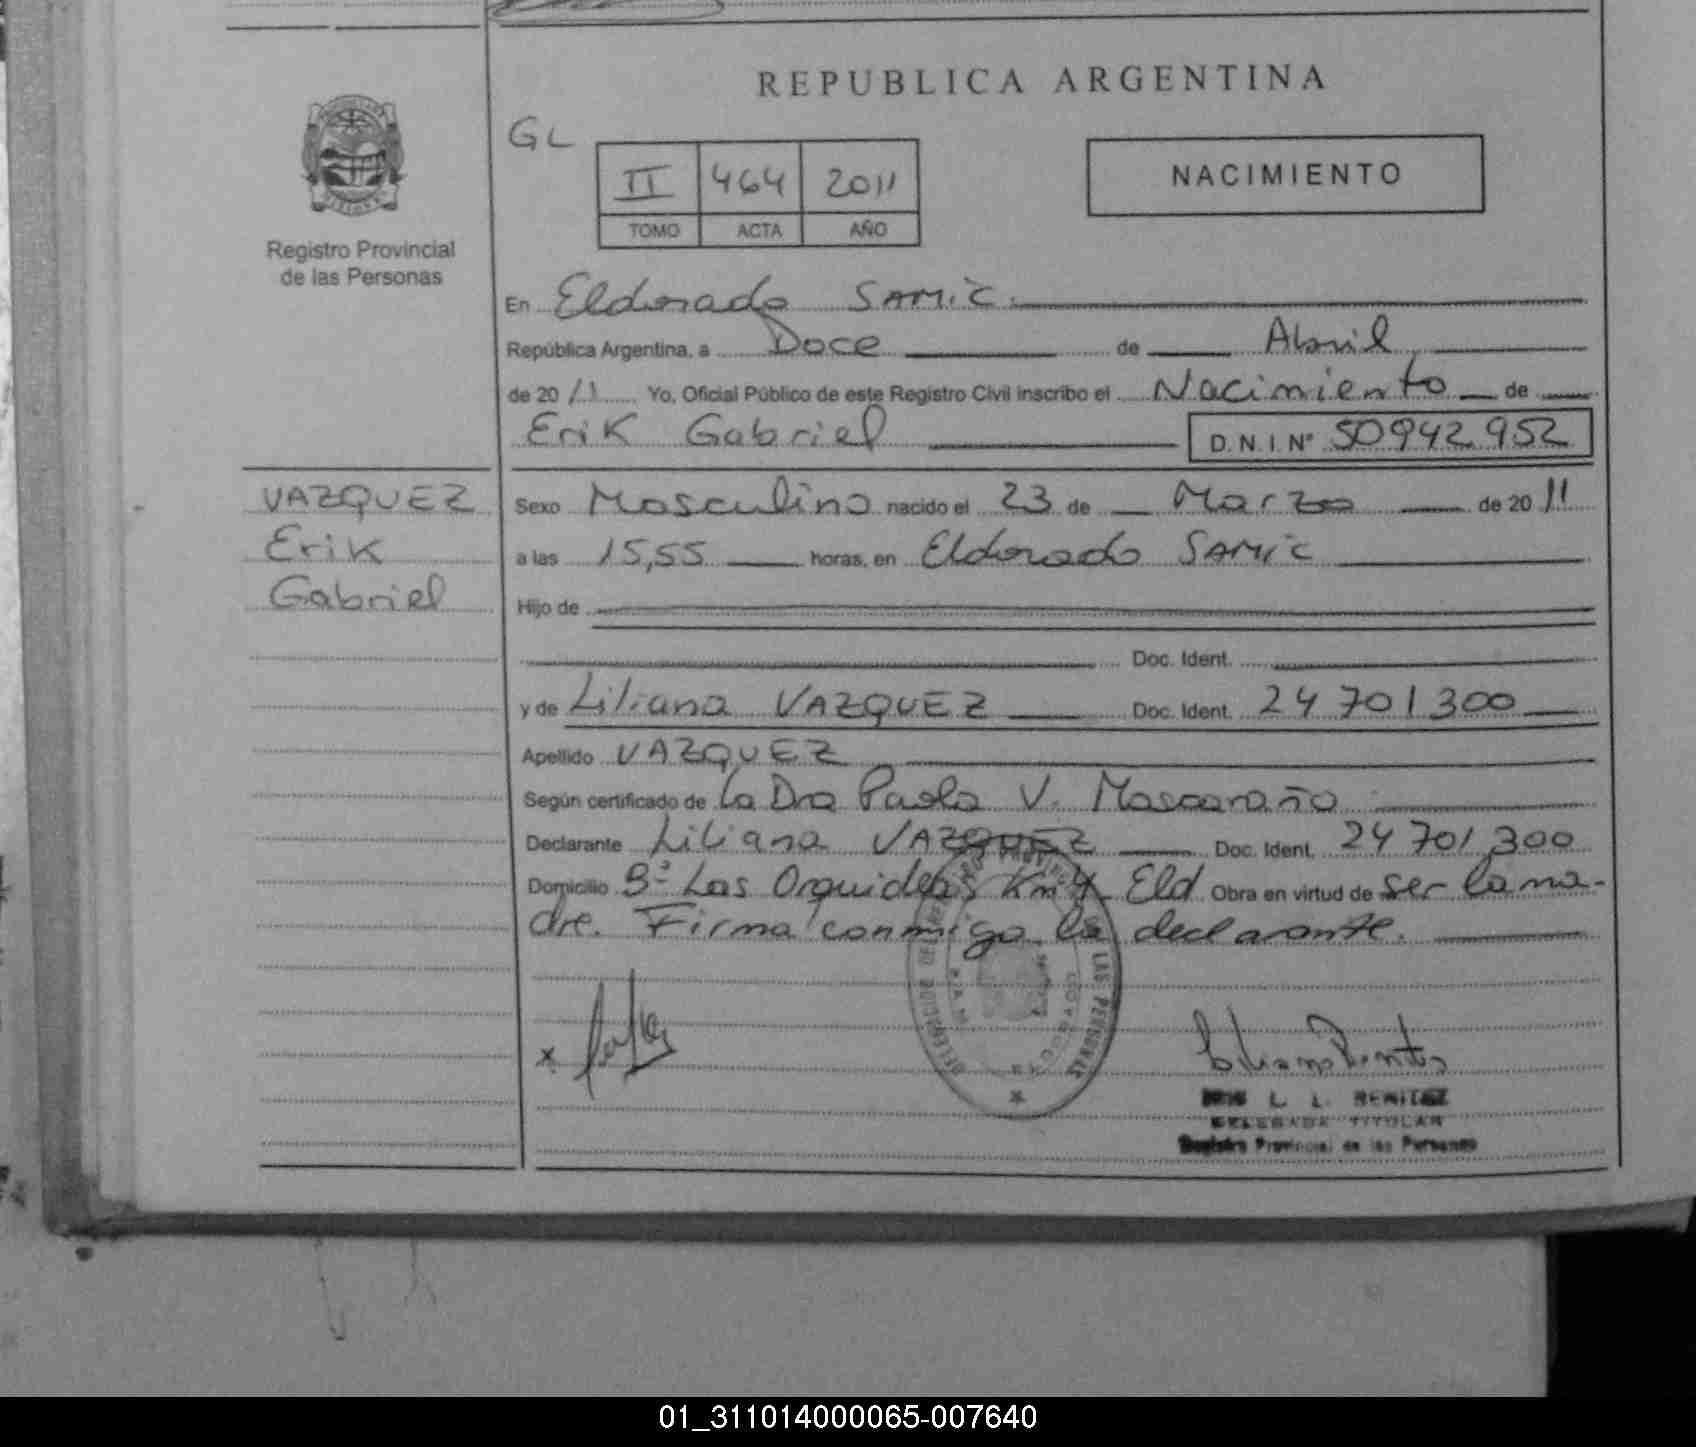 REPUBLICA ARGENTINA
GL
II 464 2011
TOMO ACTA AÑO
NACIMIENTO
Registro Provincial
de las Personas
En Eldorado SAMIC.
República Argentina, a Doce de Abril
de 2011 Yo, Oficial Público de este Registro Civil inscribo el Nacimiento de
Erik Gabriel D.N.I. Nº 50942952
VAZQUEZ
Erik
Gabriel
Sexo Masculino nacido el 23 de Marzo de 2011
a las 15,55 horas, en Eldorado SAMIC
Hijo de
Doc. Ident.
y de Liliana VAZQUEZ Doc. Ident. 24701300
Apellido VAZQUEZ
Según certificado de La Dra Paola V.
Declarante Liliana VAZQUEZ Doc. Ident. 24701300
Domicilio Bº Las Orquideas Km 4 Eld Obra en virtud de ser la ma-
dre. Firma conmigo la declarante.
DELEGACION DE LAS PERSONAS
ELDORADO
L. L. BENITEZ
DELEGADA TITULAR
Registro Provincial de las Personas
01_311014000065-007640